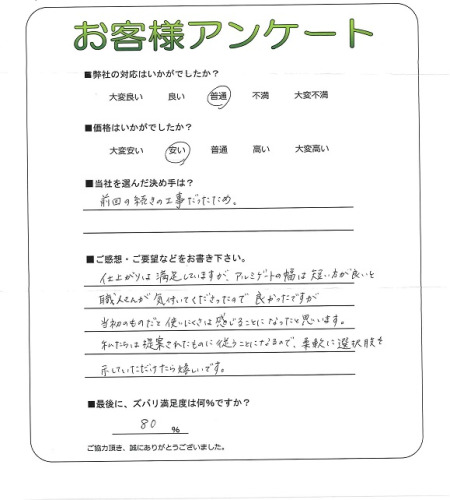 お客様アンケート
■弊社の対応はいかがでしたか？
大変良い 良い 普通 不満 大変不満
■価格はいかがでしたか？
大変安い 安い 普通 高い 大変高い
■当社を選んだ決め手は？
前回の続きの工事だったため。
■ご感想・ご要望などをお書き下さい。
仕上がりは満足していますが、アルミゲートの幅は短い方が良いと
職人さんが気付いてくださったので良かったですが
当初のものだと使いにくさは感じることになったと思います。
私たちは提案されたものに従うことになるので、柔軟に選択肢を
示していただけたら嬉しいです。
■最後に、ズバリ満足度は何％ですか？
80 ％
ご協力頂き、誠にありがとうございました。